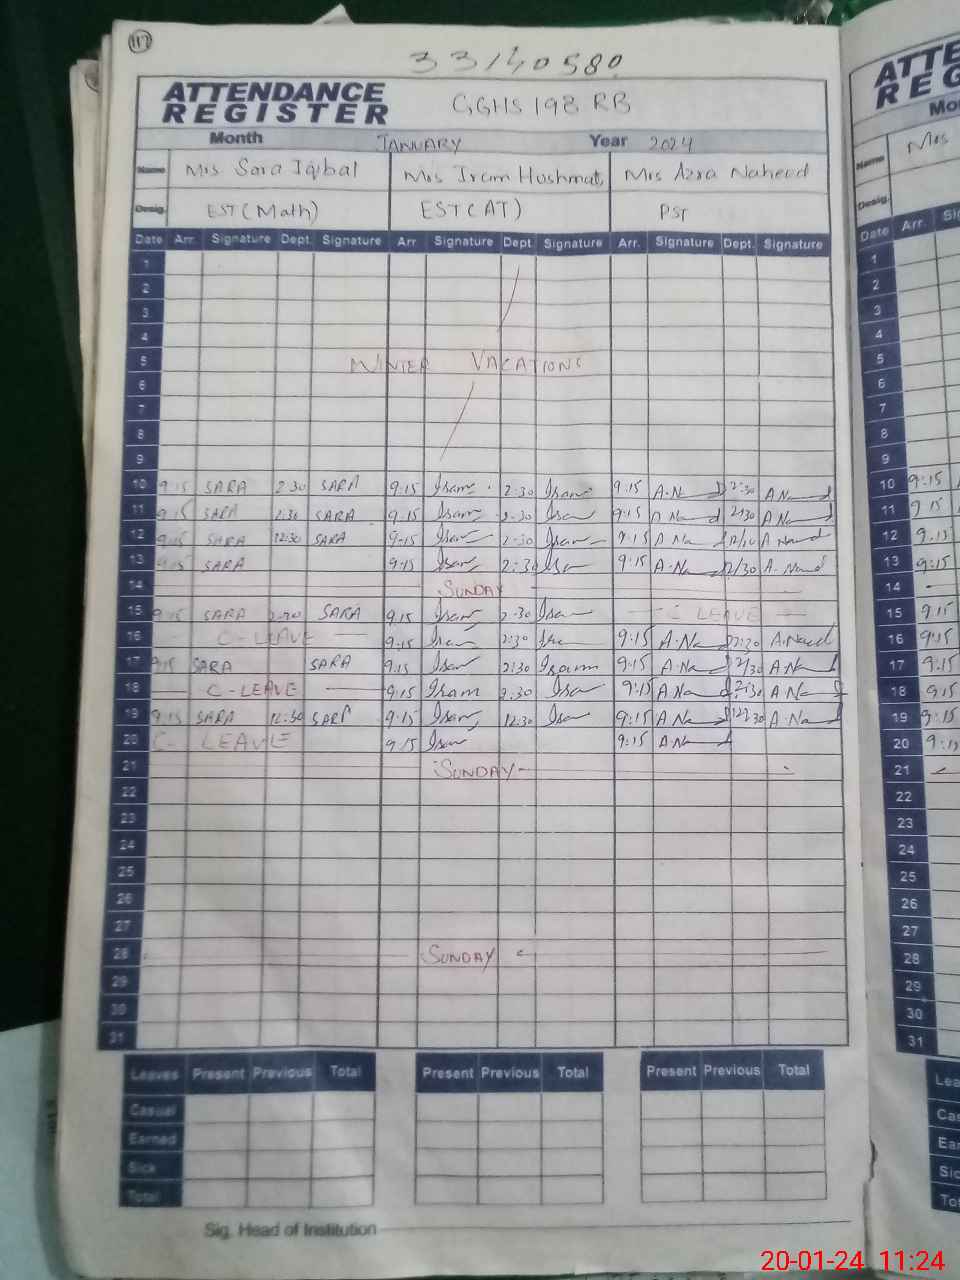 117
33140580
ATTENDANCE REGISTER GGHS 198 RB
Month JANUARY Year 2024
Name Mrs Sara Iqbal Mrs Iram Hushmat Mrs Azra Naheed
Desig. EST (Math) EST (AT) PST
Date Arr. Signature Dept. Signature Arr Signature Dept. Signature Arr. Signature Dept. Signature
1
2
3
4
5 WINTER VACATIONS
6
7
8
9
10 9:15 SARA 2:30 SARA 9:15 Iram 2:30 Iram 9:15 A.Na 2:30 A Na
11 9:15 SARA 2:30 SARA 9:15 Iram 2:30 Iram 9:15 A Na 2:30 A Na
12 9:15 SARA 12:30 SARA 9:15 Iram 2:30 Iram 9:15 A Na A Na
13 9:15 SARA 9:15 Iram 2:30 9:15 A.Na 12/30 A.Na
14 SUNDAY
15 9:15 SARA 2:30 SARA 9:15 Iram 2:30 Iram C LEAVE
16 C-LEAVE 9:15 Iram 2:30 9:15 A.Na 2:30 A.Na
17 9:15 SARA SARA 9:15 Iram 2:30 Iram 9:15 A.Na 2/30 A.Na
18 C-LEAVE 9:15 Iram 2:30 9:15 A Na 2:30 A Na
19 9:15 SARA 12:30 SARA 9:15 Iram 12:30 9:15 A Na 12:30 A.Na
20 C- LEAVE 9:15 Iram 9:15 A.Na
21 SUNDAY
22
23
24
25
26
27
28 SUNDAY
29
30
31
Leaves Present Previous Total Present Previous Total Present Previous Total
Casual
Earned
Sick
Total
Sig. Head of Institution
ATTE
REG
Mo
Name Mrs
Desig.
Date Arr. Si
1
2
3
4
5
6
7
8
9
10 9:15
11 9:15
12 9:15
13 9:15
14
15 9:15
16 9:15
17 9:15
18 9:15
19 9:15
20 9:15
21
22
23
24
25
26
27
28
29
30
31
Lea
Cas
Ea
Sic
To
20-01-24 11:24